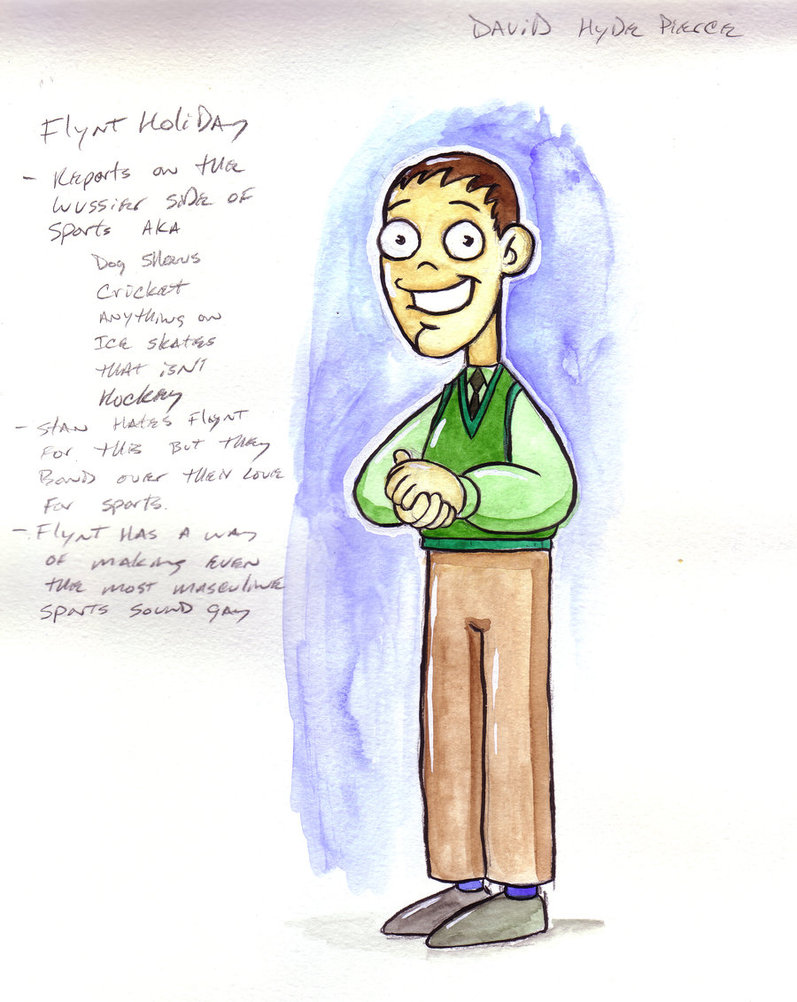 DAViD HYDE PIERCE
Flynt HoliDay
- REPORTS ON THE
WUSSIER SIDE OF
SPORTS AKA
DOG SHOWS
CRICKET
ANYTHING ON
ICE SKATES
THAT ISN'T
HOCKEY
- STAN HATES FLYNT
FOR THIS BUT THEY
BOND OVER THEIR LOVE
FOR SPORTS.
- FLYNT HAS A WAY
OF MAKING EVEN
THE MOST MASCULINE
SPORTS SOUND GAY